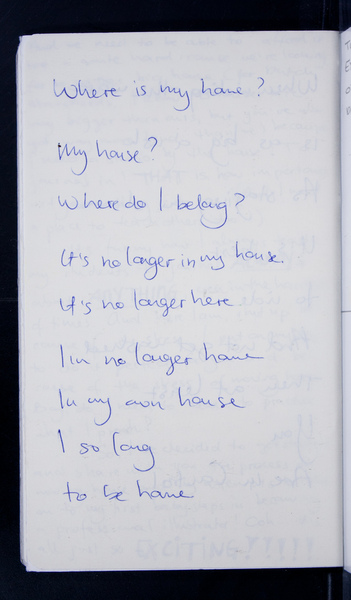 Where is my home?
My house?
Where do I belong?
It's no longer in my house.
It's no longer here
I'm no longer home
In my own house
I so long
to be home